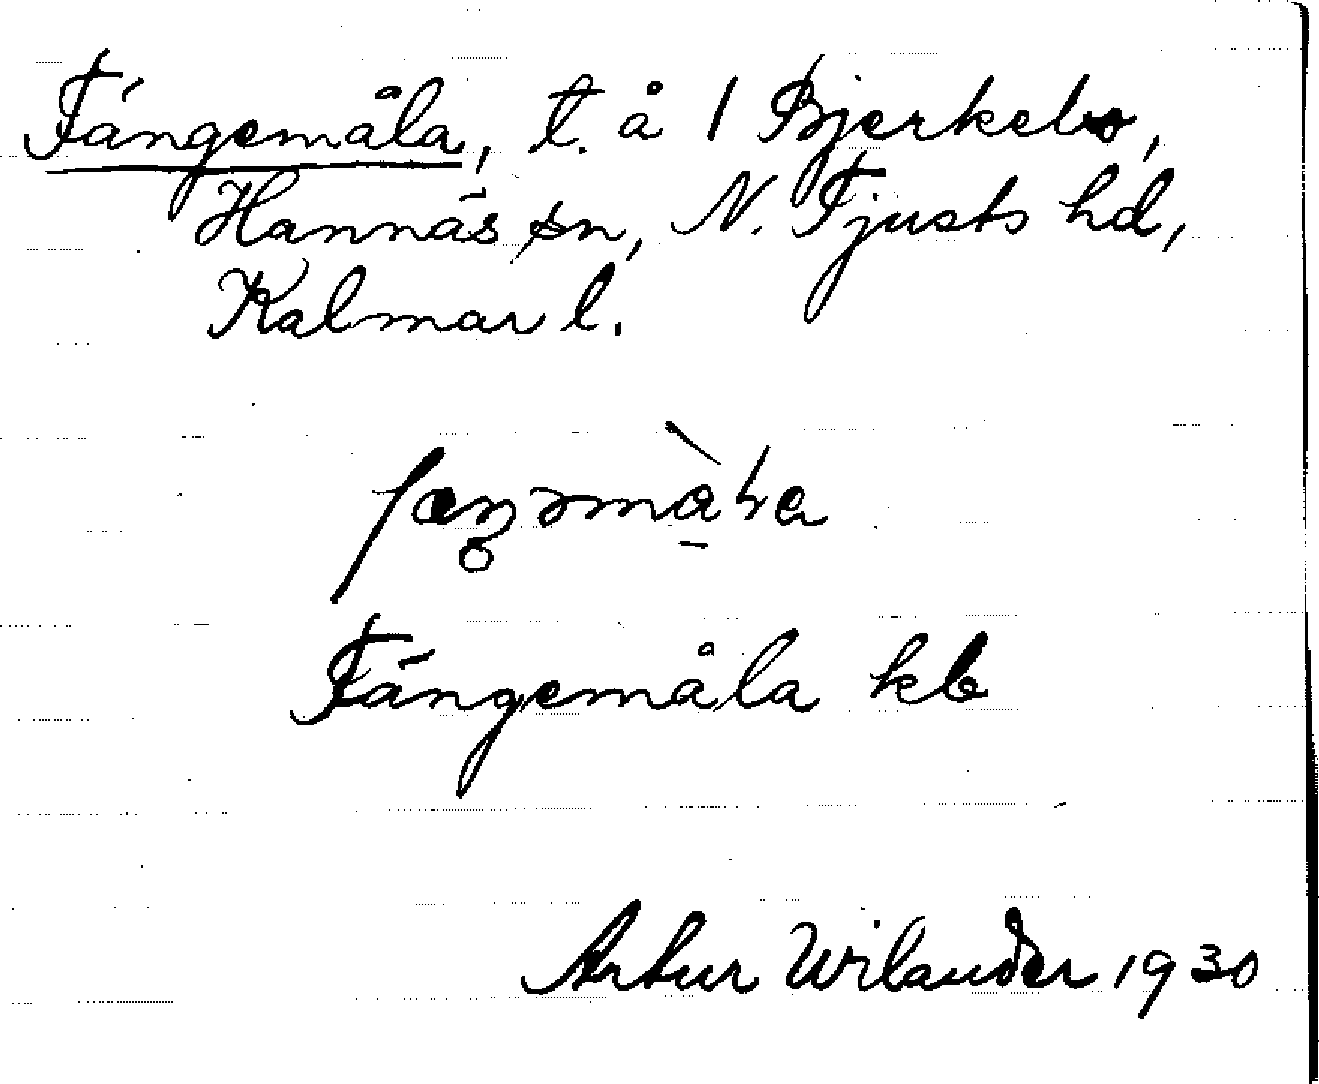 Fängemåla, t. å 1 Bjerkebo,
Hannäs sn, N. Tjusts hd,
Kalmar l.
Fängemåla kb
Artur Wilander 1930